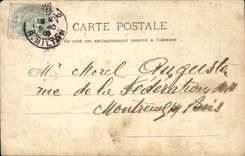 CARTE POSTALE
Ce côté est exclusivement réservé à l'adresse
Mr Morel Auguste
rue de la Fédération
Montreuil s/ Paris